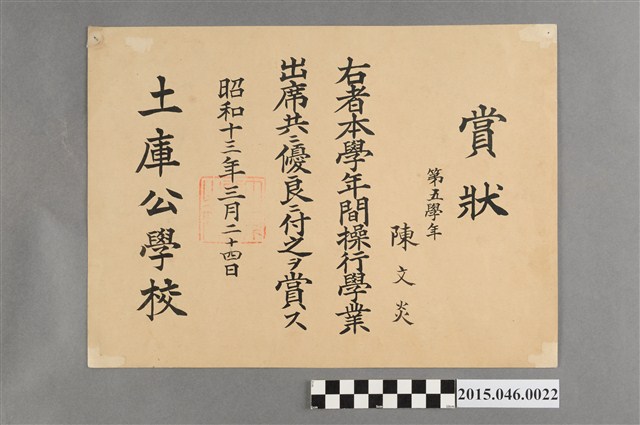 賞狀
第五學年
陳文炎
右者本學年間操行學業
出席共ニ優良ニ付之ヲ賞ス
昭和十三年三月二十四日
土庫公學校
2015.046.0022